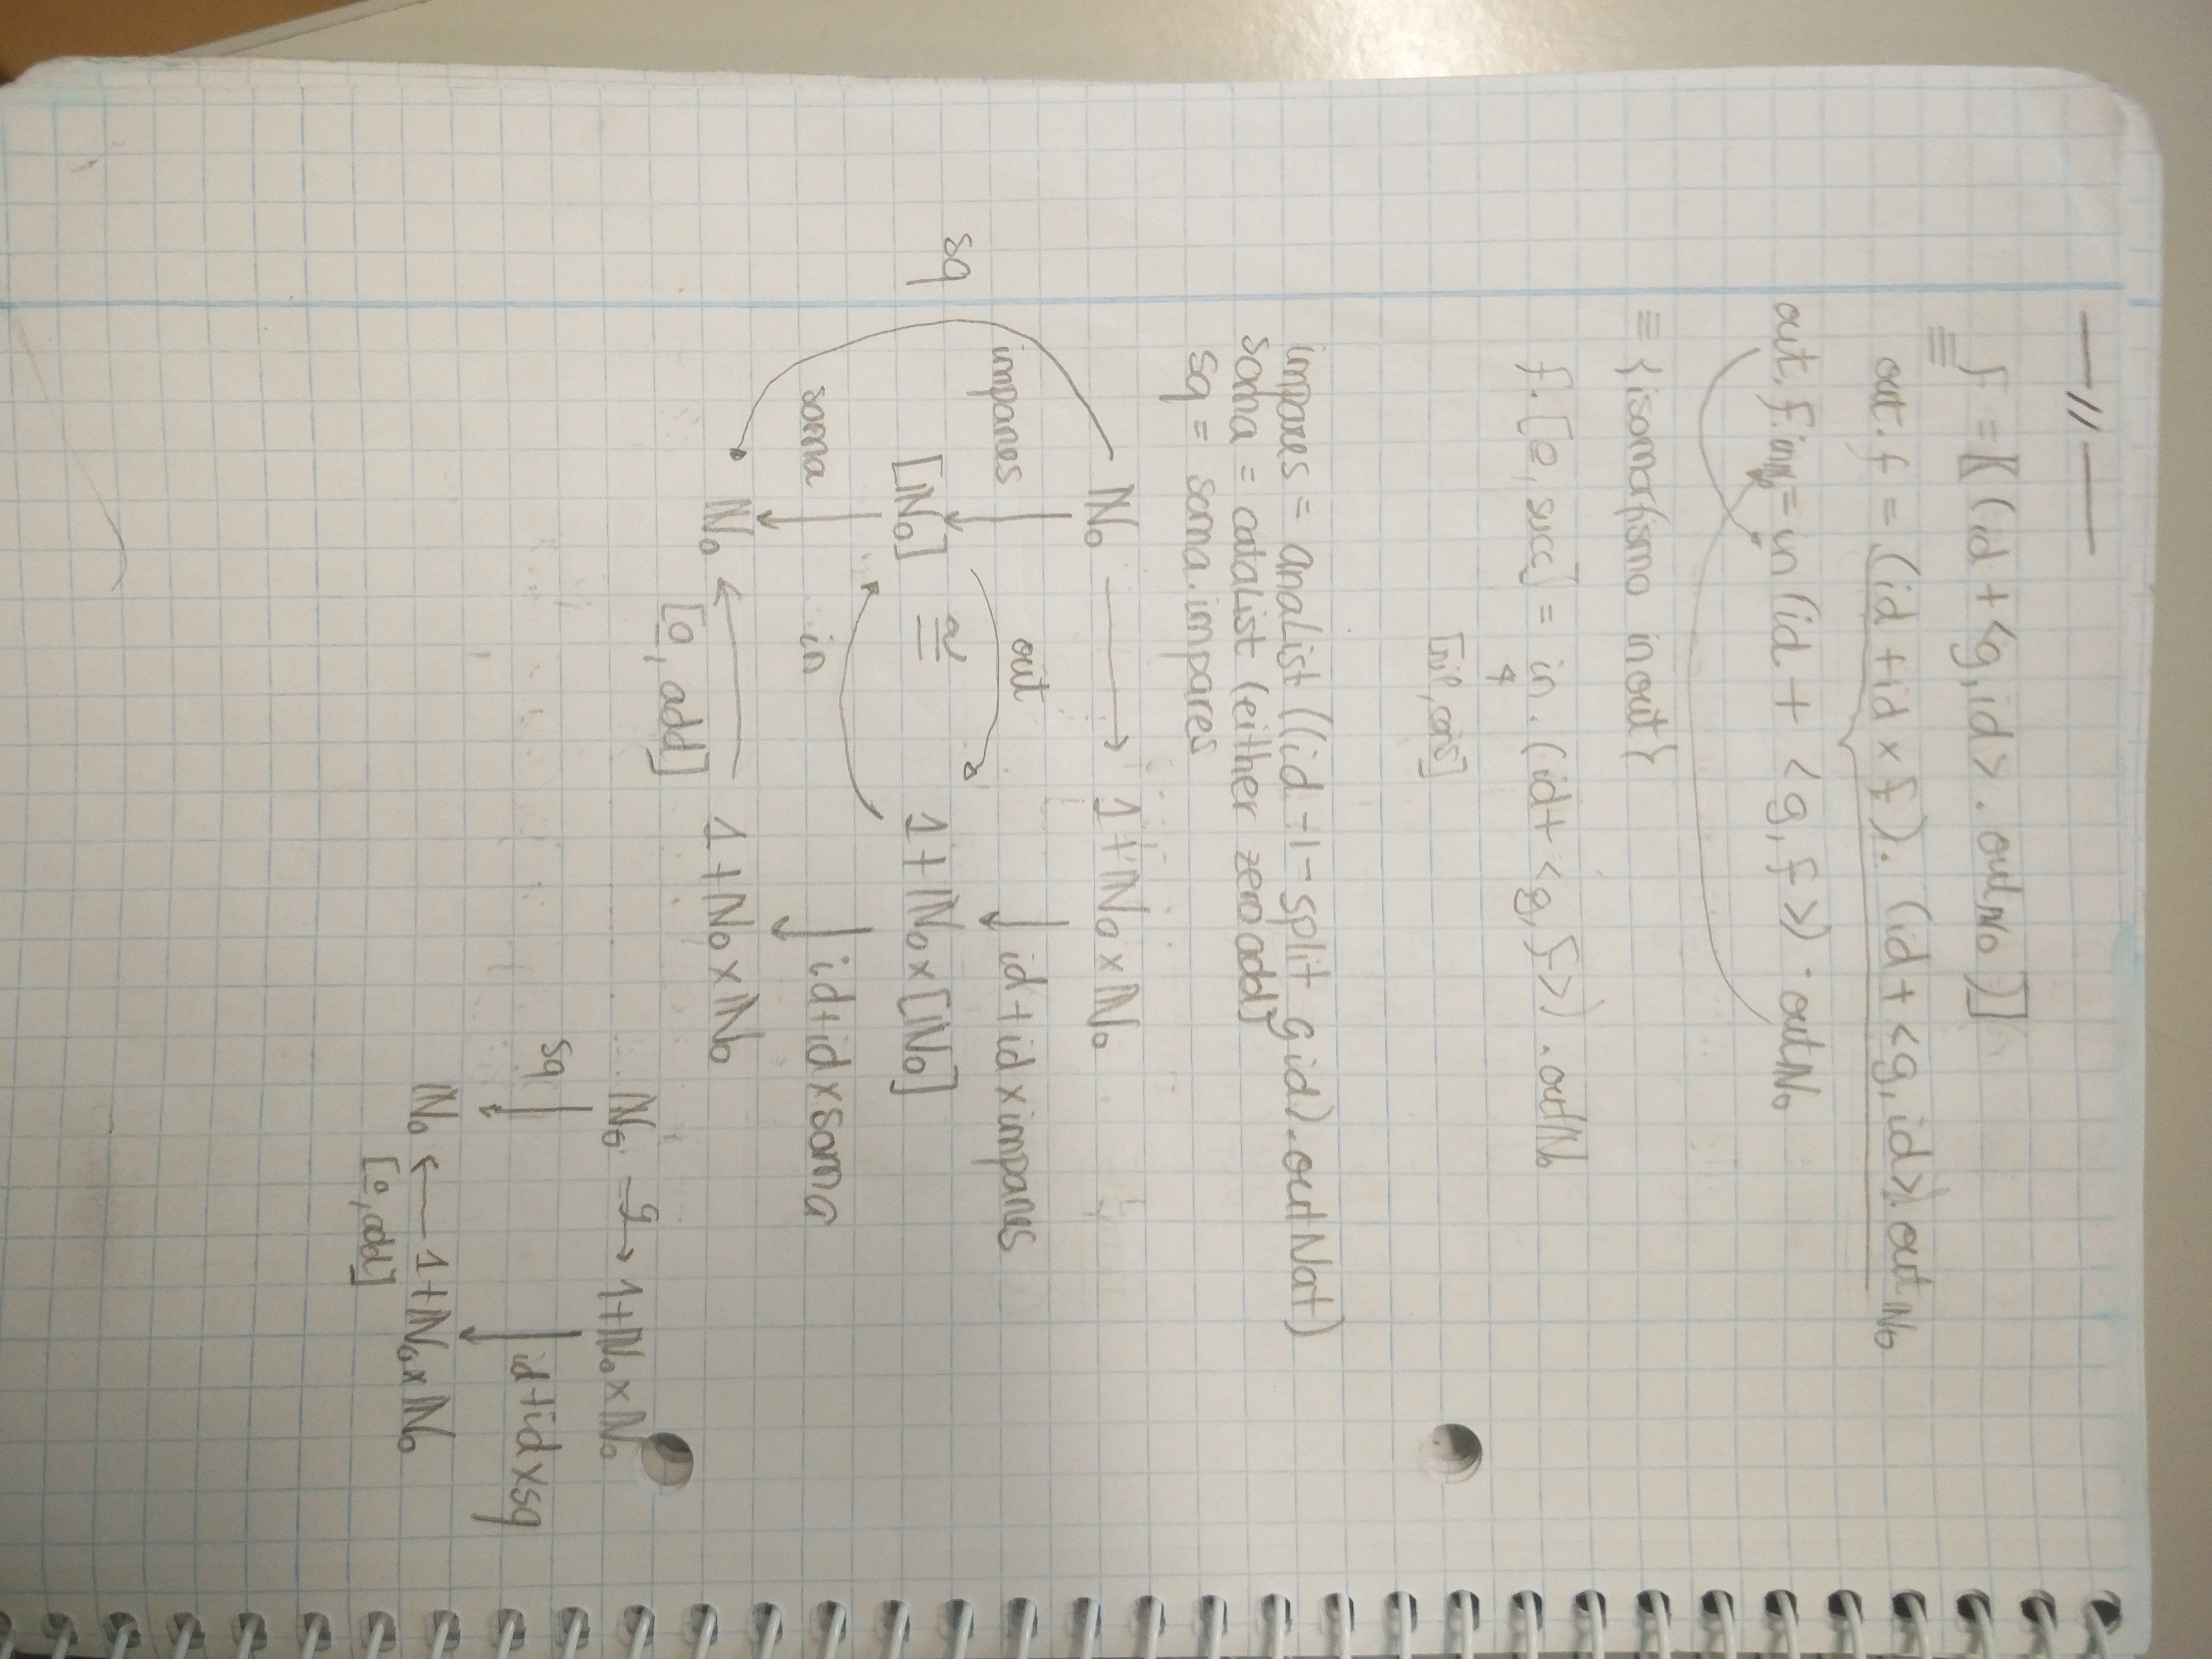 —//—
f = [( (id + <g, id> . out ℕ₀ )]
≡
out . f = (id + id × f) . (id + <g, id>) . out ℕ₀
out . f . in ℕ₀ = in (id + <g, f>) · out ℕ₀
≡ {isomorfismo in out}
f . [0, succ] = in . (id + <g, f>) . out ℕ₀
[nil, cons]
impares = anaList ((id -|- split g id) . outNat)
soma = cataList (either zero add)
sq = soma . impares
ℕ₀ → 1 + ℕ₀ × ℕ₀
impares ↓ out ↓ id + id × impares
sq
[ℕ₀] ≅ 1 + ℕ₀ × [ℕ₀]
soma ↓ in ↓ id + id × soma
ℕ₀ ← 1 + ℕ₀ × ℕ₀
[0, add]
ℕ₀ —g→ 1 + ℕ₀ × ℕ₀
sq ↓ ↓ id + id × sq
ℕ₀ ← 1 + ℕ₀ × ℕ₀
[0, add]